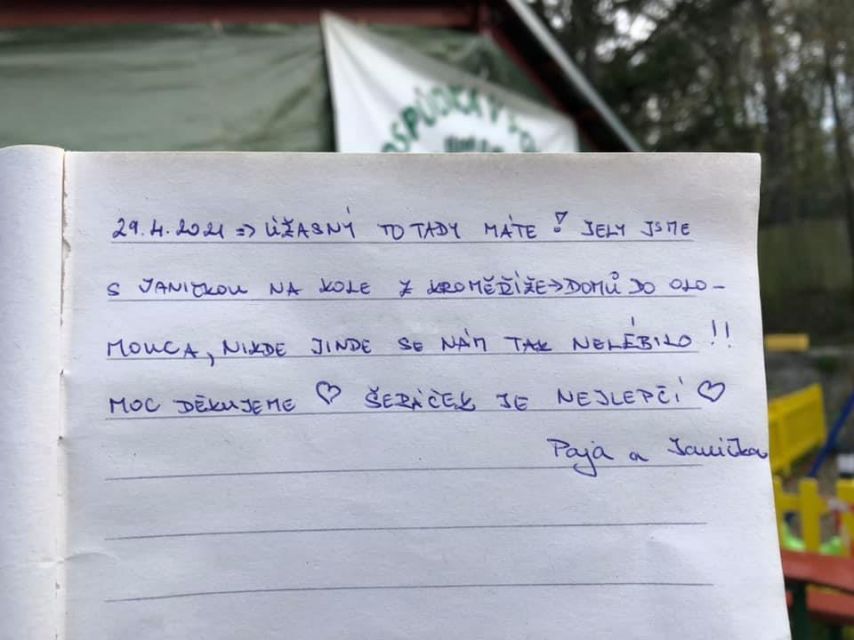 OSPŮDKA V
29.4.2021 => ÚŽASNÝ TO TADY MÁTE! JELY JSME
S JANIČKOU NA KOLE Z KROMĚŘÍŽE→DOMŮ DO OLO-
MOUCA, NIKDE JINDE SE NÁM TAK NELÍBILO!!
MOC DĚKUJEME ♡ ŠERÁČEK JE NEJLEPČÍ ♡
Pajá a Janička